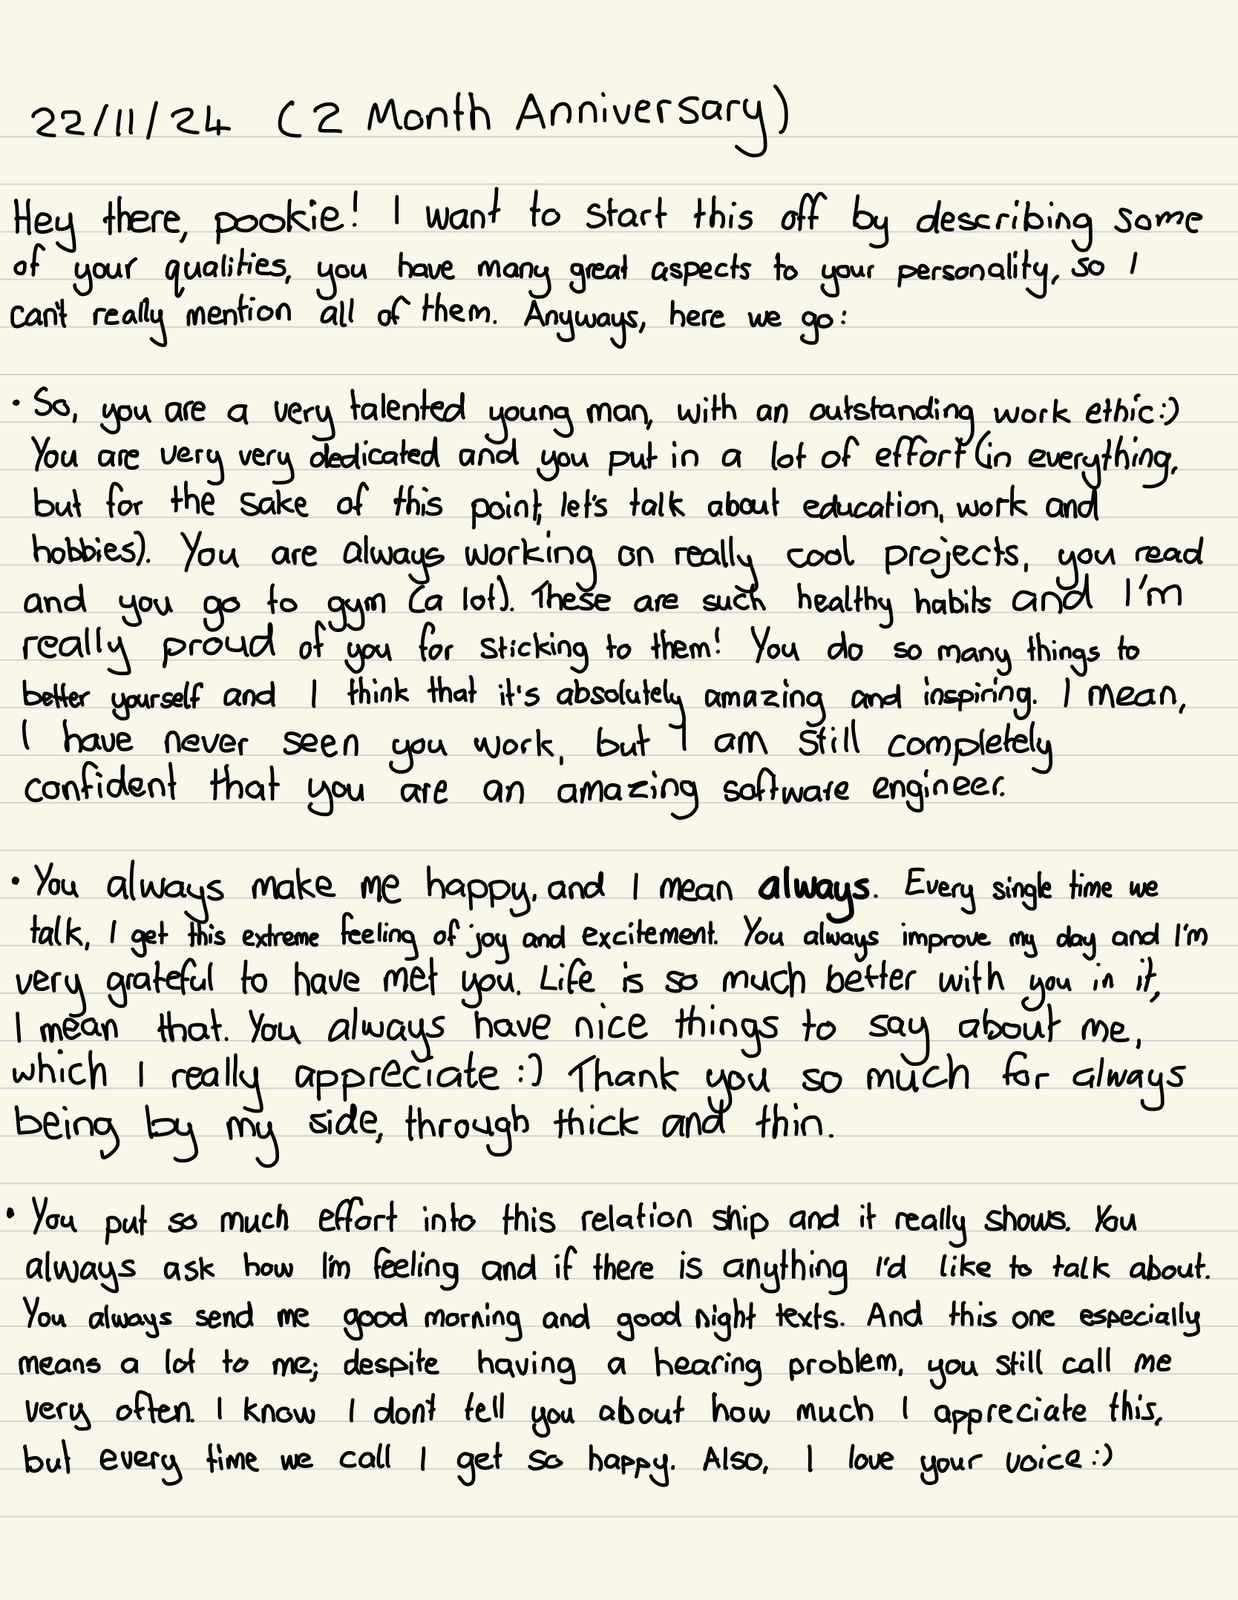 22/11/24 (2 Month Anniversary)
Hey there, pookie! I want to start this off by describing some
of your qualities, you have many great aspects to your personality, so I
can't really mention all of them. Anyways, here we go:
• So, you are a very talented young man, with an outstanding work ethic:)
You are very very dedicated and you put in a lot of effort (in everything,
but for the sake of this point, let's talk about education, work and
hobbies). You are always working on really cool projects, you read
and you go to gym (a lot). These are such healthy habits and I'm
really proud of you for sticking to them! You do so many things to
better yourself and I think that it's absolutely amazing and inspiring. I mean,
I have never seen you work, but I am still completely
confident that you are an amazing software engineer.
• You always make me happy, and I mean always. Every single time we
talk, I get this extreme feeling of joy and excitement. You always improve my day and I'm
very grateful to have met you. Life is so much better with you in it,
I mean that. You always have nice things to say about me,
which I really appreciate :) Thank you so much for always
being by my side, through thick and thin.
• You put so much effort into this relation ship and it really shows. You
always ask how I'm feeling and if there is anything I'd like to talk about.
You always send me good morning and good night texts. And this one especially
means a lot to me; despite having a hearing problem, you still call me
very often. I know I don't tell you about how much I appreciate this,
but every time we call I get so happy. Also, I love your voice :)